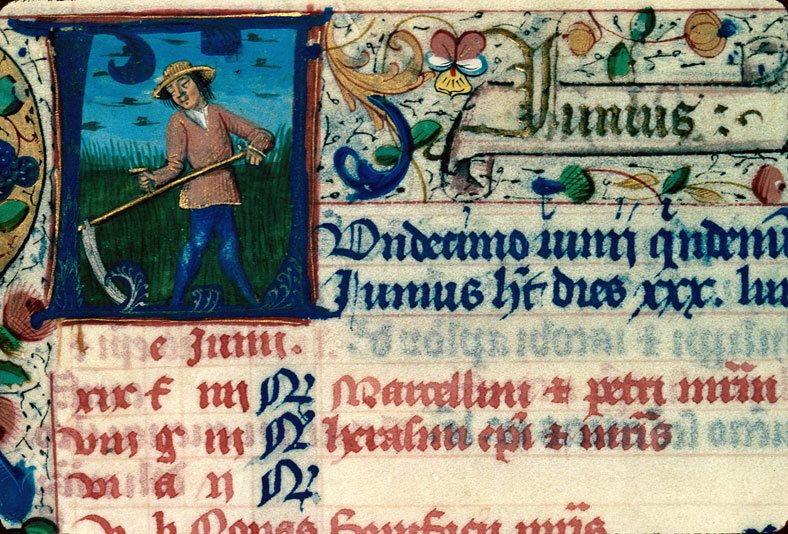 Junius
Undecimo iunij qndenu
Junius ht dies xxx. lun
e Junij.
xix f iiij N Marcellini & petri mrm
viij g iij N herasmi epi & mris
vi a ij N
b Nonas bonifacij mris